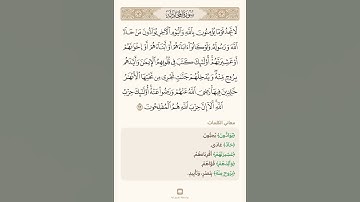 سورة المجادلة
لَّا تَجِدُ قَوْمًا يُؤْمِنُونَ بِاللَّهِ وَالْيَوْمِ الْآخِرِ يُوَادُّونَ مَنْ حَادَّ
اللَّهَ وَرَسُولَهُ وَلَوْ كَانُوا آبَاءَهُمْ أَوْ أَبْنَاءَهُمْ أَوْ إِخْوَانَهُمْ
أَوْ عَشِيرَتَهُمْ أُولَٰئِكَ كَتَبَ فِي قُلُوبِهِمُ الْإِيمَانَ وَأَيَّدَهُم
بِرُوحٍ مِّنْهُ وَيُدْخِلُهُمْ جَنَّاتٍ تَجْرِي مِن تَحْتِهَا الْأَنْهَارُ
خَالِدِينَ فِيهَا رَضِيَ اللَّهُ عَنْهُمْ وَرَضُوا عَنْهُ أُولَٰئِكَ حِزْبُ
اللَّهِ أَلَا إِنَّ حِزْبَ اللَّهِ هُمُ الْمُفْلِحُونَ
معاني الكلمات
﴿يُوَادُّونَ﴾ يُحِبُّونَ.
﴿حَادَّ﴾ عَادَى.
﴿عَشِيرَتَهُمْ﴾ أَقْرِبَاءَهُمْ.
﴿وَأَيَّدَهُم﴾ قَوَّاهُمْ.
﴿بِرُوحٍ مِّنْهُ﴾ بِنَصْرٍ، وَتَأْيِيدٍ.